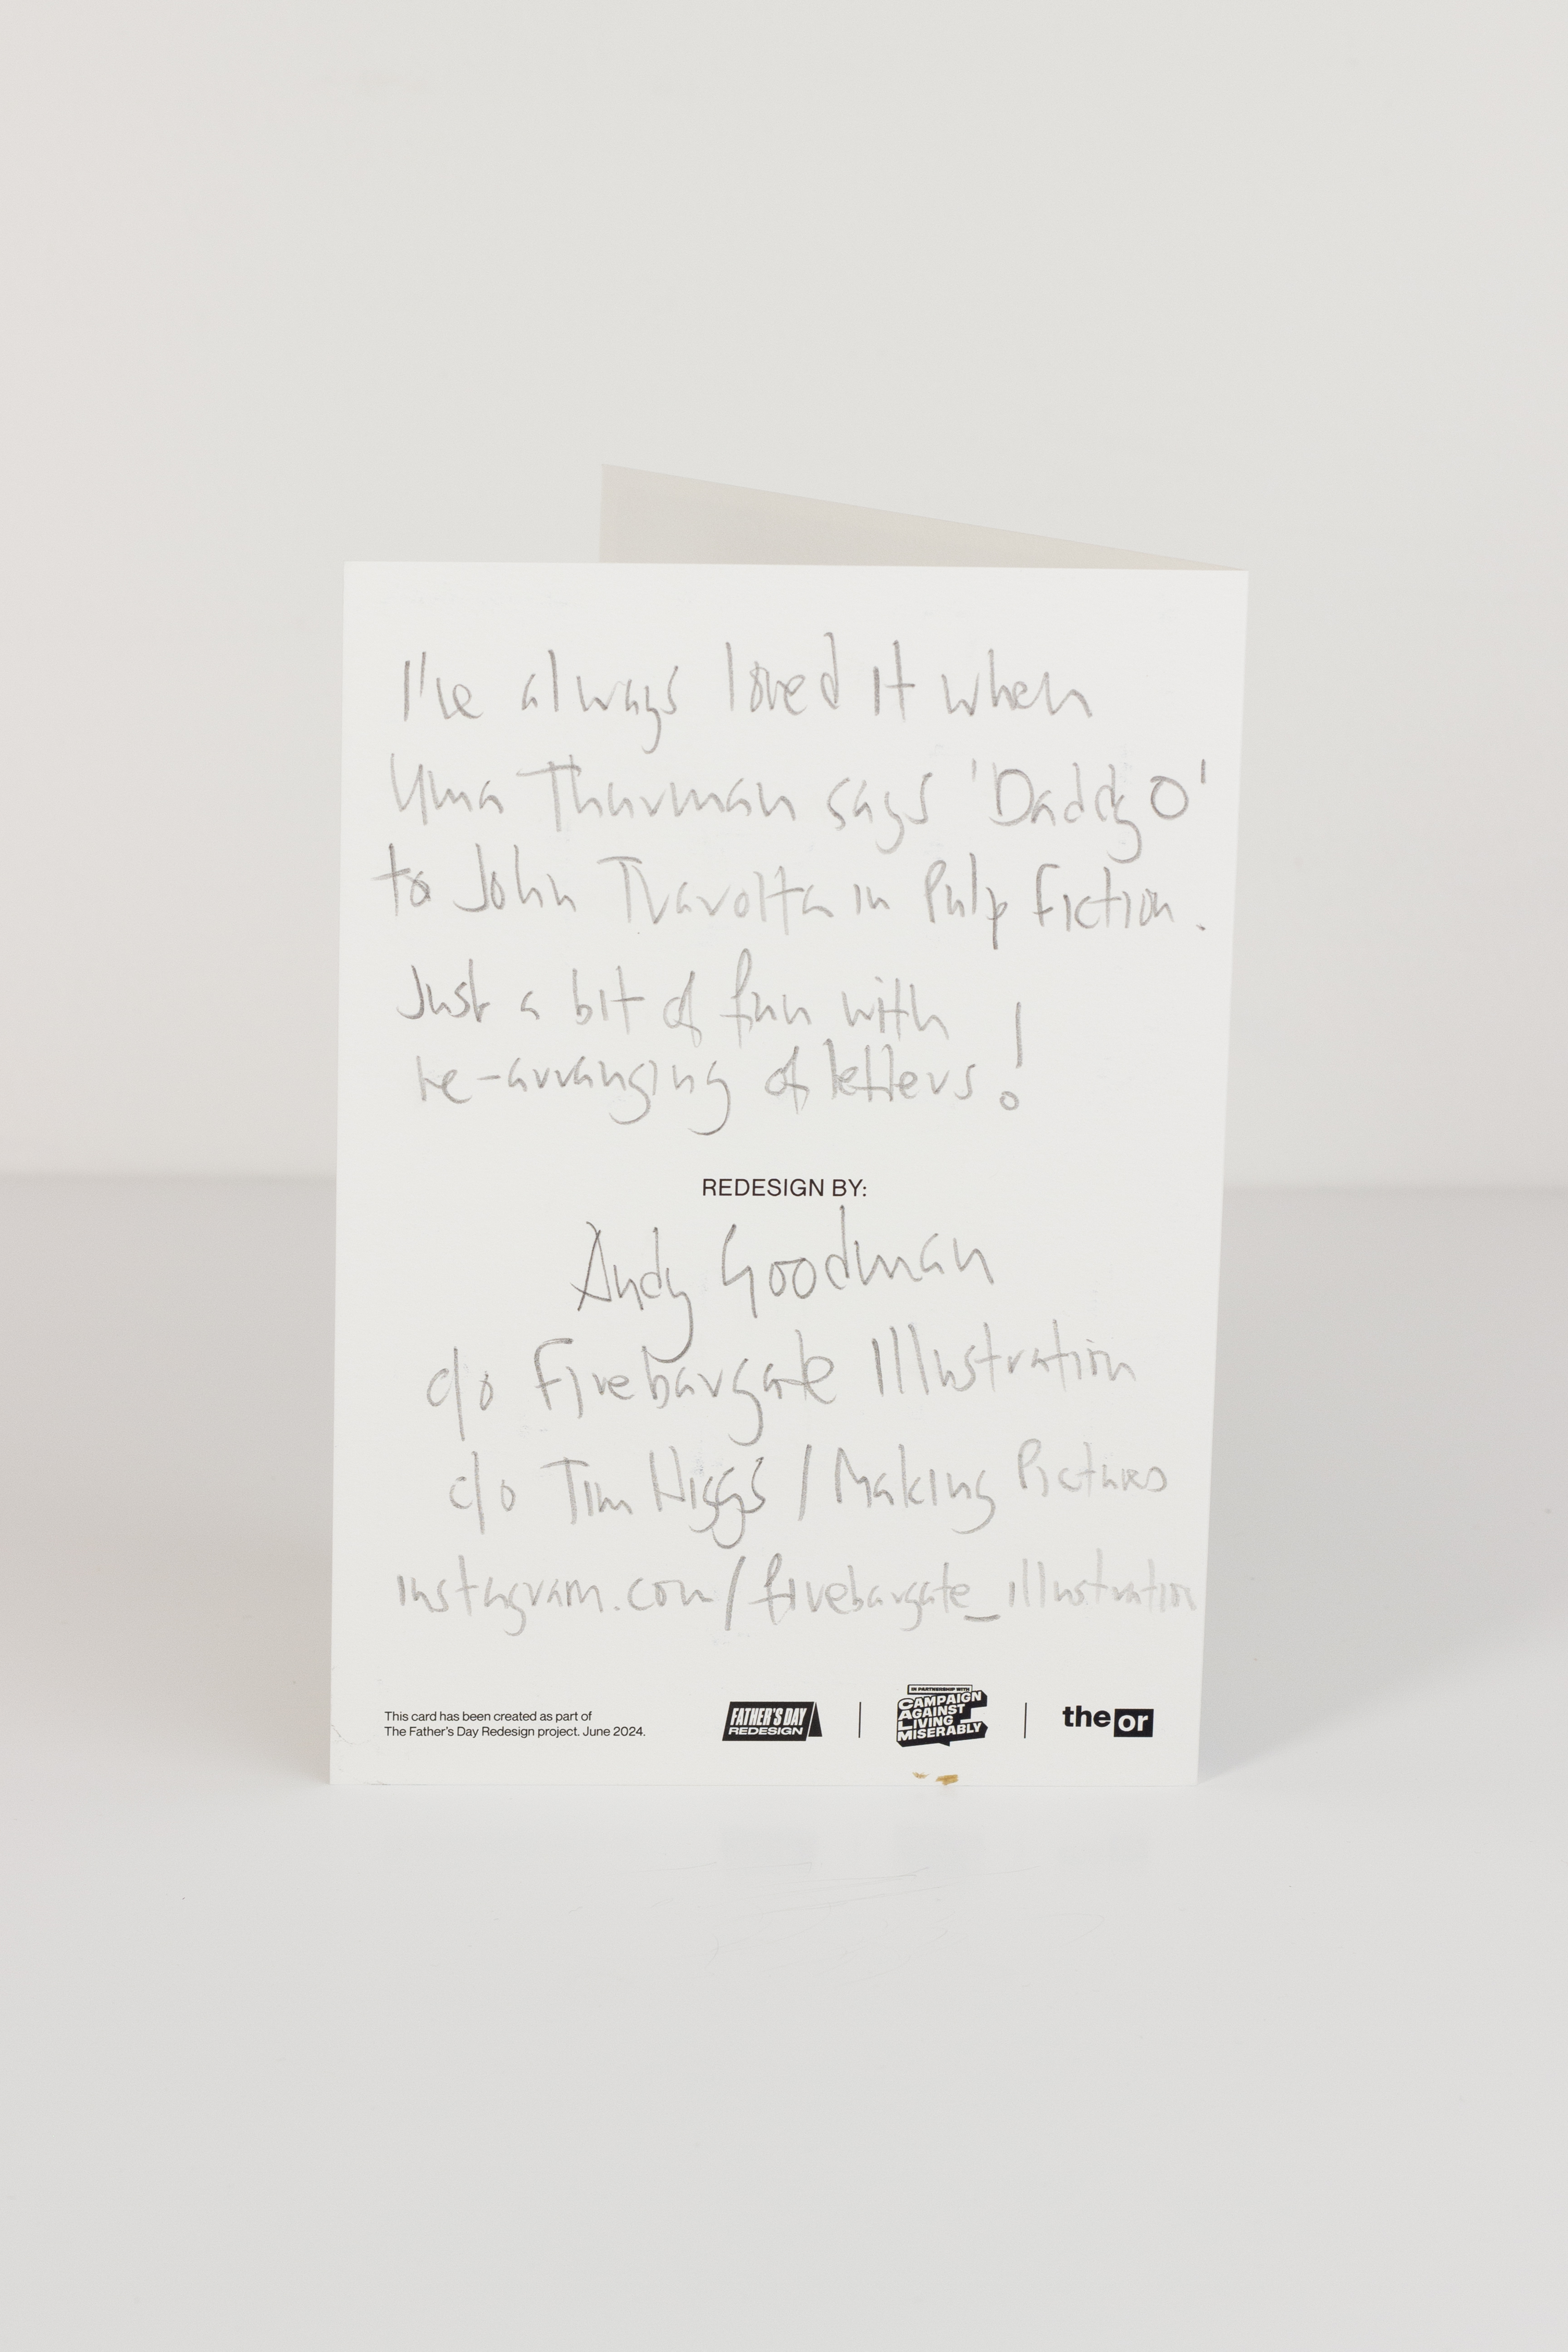 I've always loved it when
Uma Thurman says 'Daddy O'
to John Travolta in Pulp Fiction.
Just a bit of fun with
re-arranging of letters!
REDESIGN BY:
Andy Goodman
c/o Fivebargate Illustration
c/o Tim Higgs / Making Pictures
instagram.com/fivebargate_illustration
This card has been created as part of
The Father's Day Redesign project. June 2024.
FATHER'S DAY
REDESIGN
IN PARTNERSHIP WITH
CAMPAIGN
AGAINST
LIVING
MISERABLY
the or